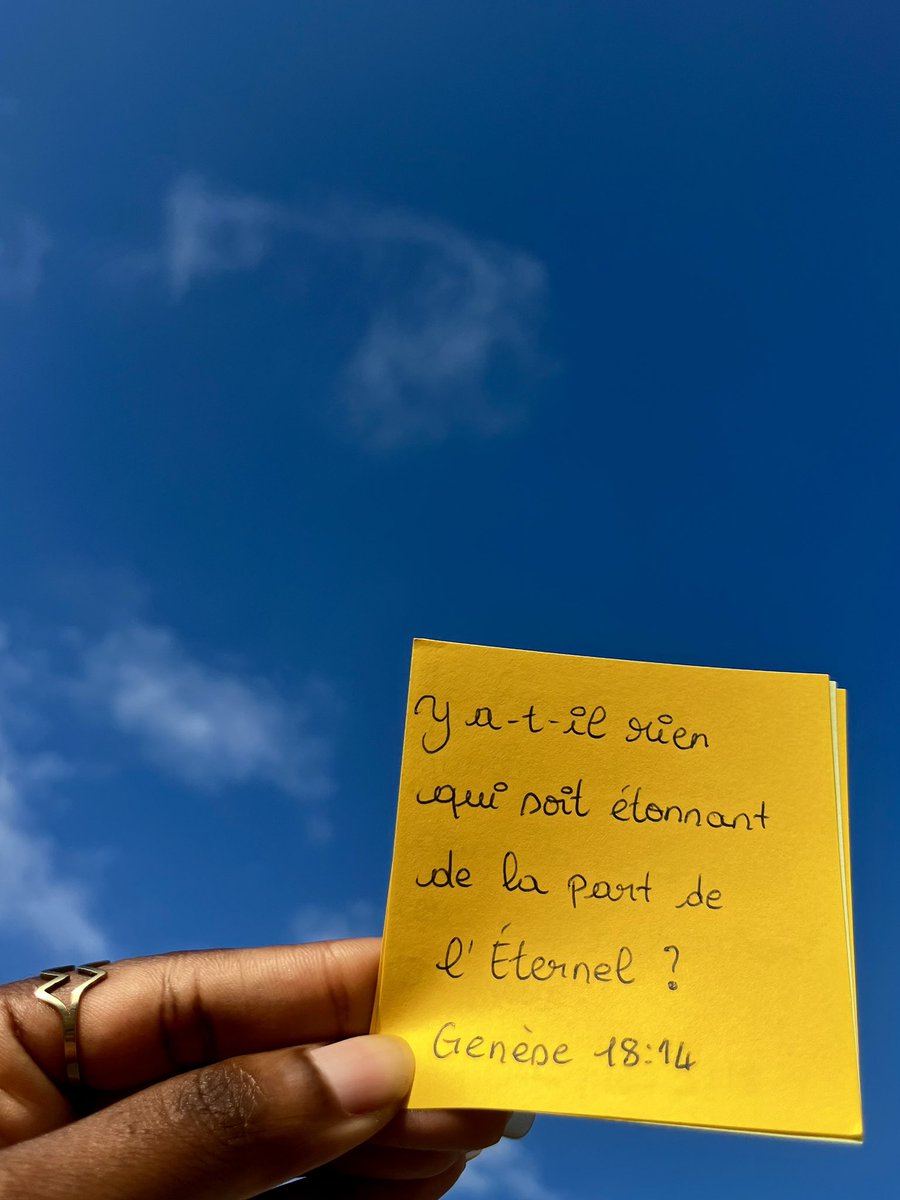 Y a-t-il rien
qui soit étonnant
de la part de
l'Éternel ?
Genèse 18:14